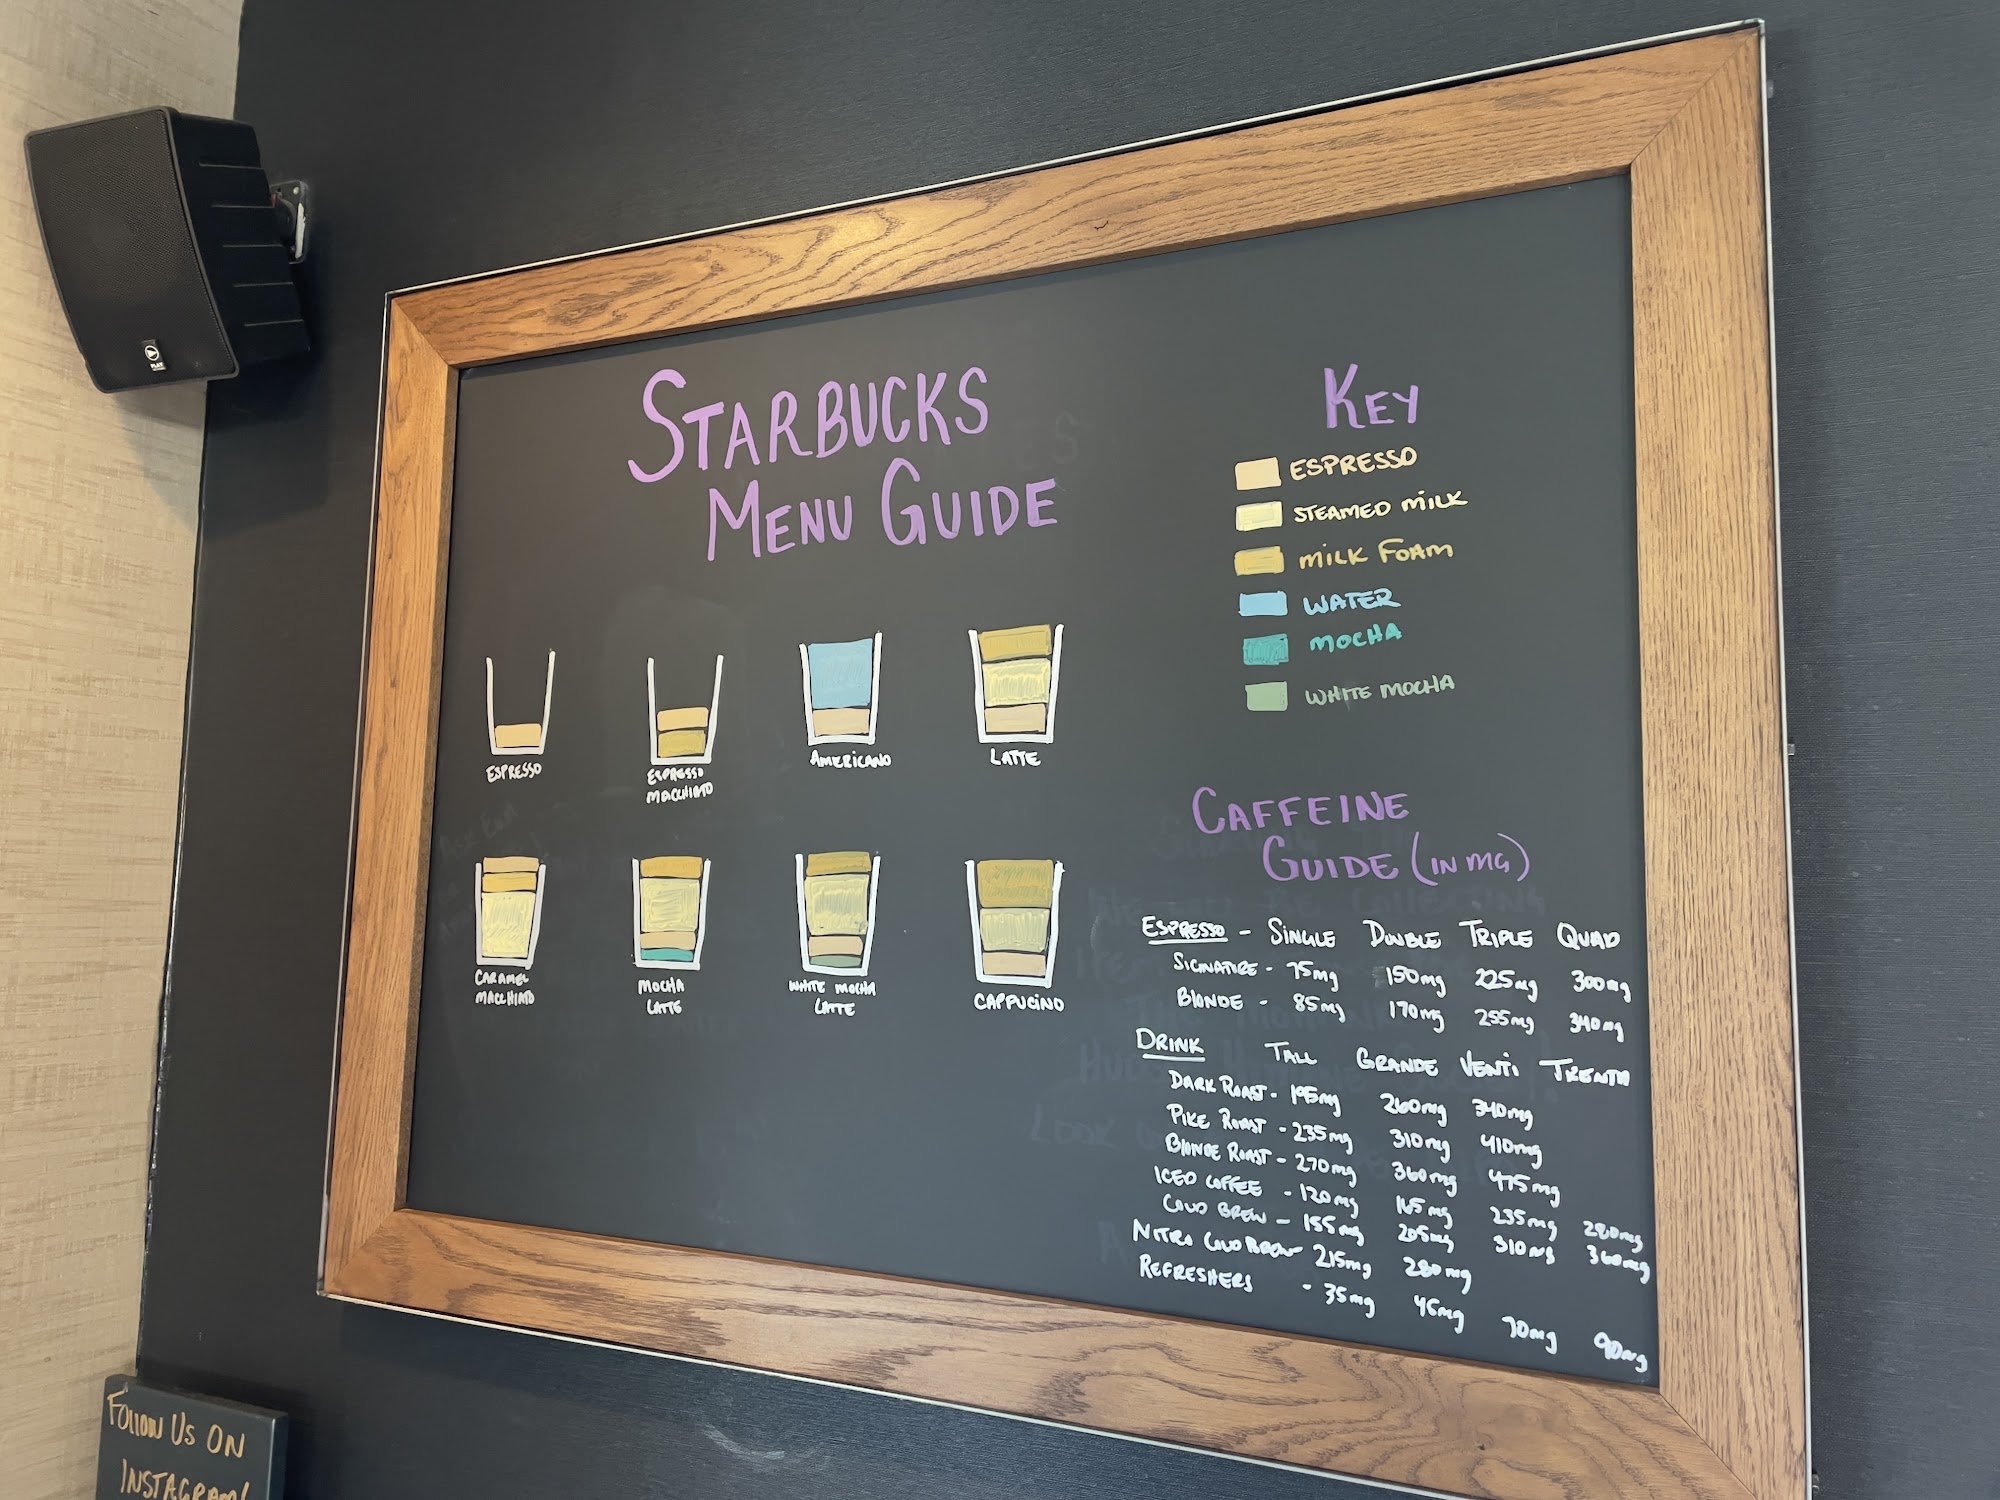 STARBUCKS
MENU GUIDE
KEY
ESPRESSO
STEAMED MILK
MILK FOAM
WATER
MOCHA
WHITE MOCHA
ESPRESSO
ESPRESSO
MACCHIATO
AMERICANO
LATTE
CARAMEL
MACCHIATO
MOCHA
LATTE
WHITE MOCHA
LATTE
CAPPUCINO
CAFFEINE
GUIDE (IN MG)
ESPRESSO - SINGLE DOUBLE TRIPLE QUAD
SIGNATURE - 75mg 150mg 225mg 300mg
BLONDE - 85mg 170mg 255mg 340mg
DRINK TALL GRANDE VENTI TRENTA
DARK ROAST - 195mg 260mg 340mg
PIKE ROAST - 235mg 310mg 410mg
BLONDE ROAST - 270mg 360mg 475mg
ICED COFFEE - 120mg 165mg 235mg 280mg
COLD BREW - 155mg 205mg 310mg 360mg
NITRO COLD BREW - 215mg 280mg
REFRESHERS - 35mg 45mg 70mg 90mg
PLAY
FOLLOW US ON
INSTAGRAM!